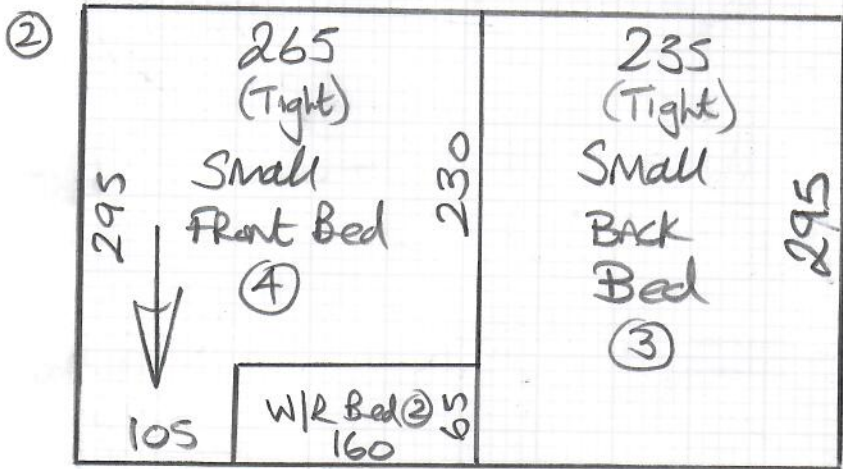 ②
265
(Tight)
Small
Front Bed
④
295
230
105
W/R Bed②
160
65
235
(Tight)
Small
Back
Bed
③
295